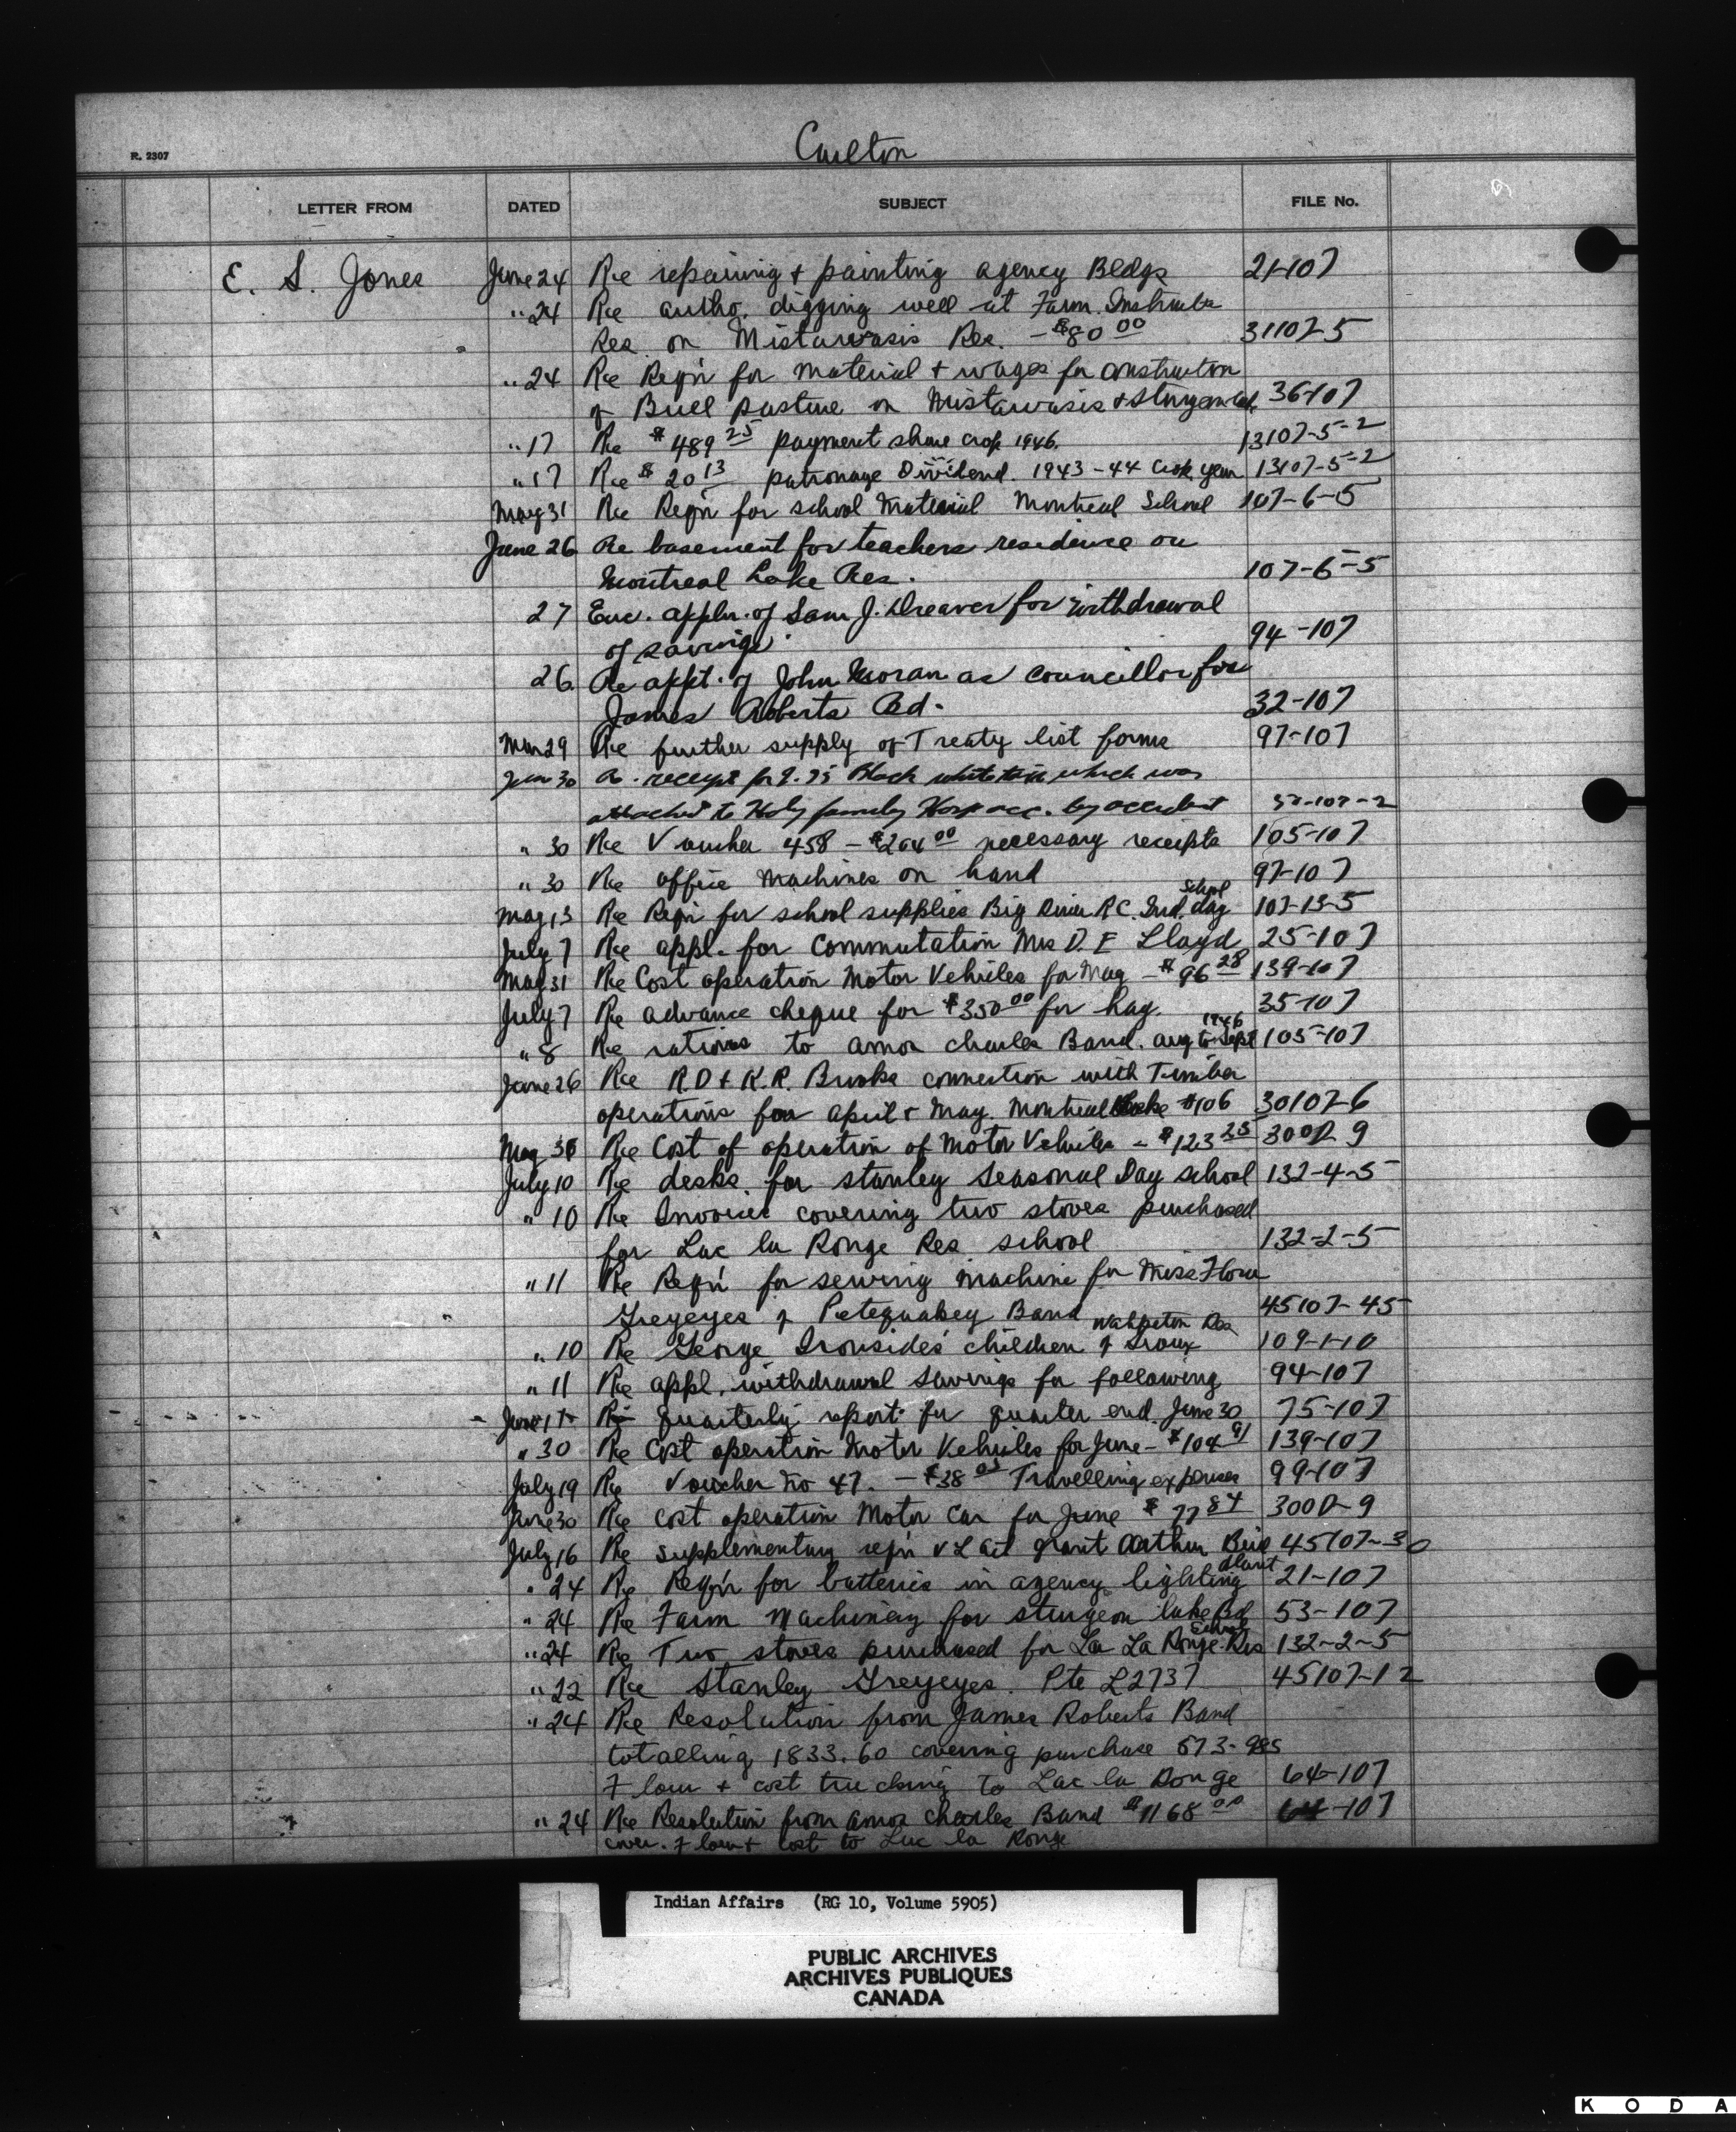 Carlton
R. 2307
LETTER FROM DATED SUBJECT FILE No.
E. S. Jones June 24 Re repairing + painting agency Bldgs 21-107
" 24 Re autho. digging well at Farm Instructs
Res on Mistawasis Res. - $80 00 31107-5
" 24 Re Reqn for material + wages for construction
of Bull pasture on Mistawasis + Sturgeon Lake 36-107
" 17 Re $489 25 payment share crop 1946. 13107-5-2
" 17 Re $20 13 patronage Dividend. 1943-44 Crop year 13107-5-2
May 31 Re Reqn for school Material Montreal School 107-6-5
June 26 Re basement for teachers residence on
Montreal Lake Res. 107-6-5
27 Enc. appln. of Sam J. Dreaver for withdrawal
of savings. 94-107
26 Re appt. of John Moran as councillor for
James Roberts Bd. 32-107
29 Re further supply of Treaty list forms 97-107
Jun 30 Re. receipt for 9.75 Black which was
attached to Holy family Hosp acc. by accident 57-107-2
" 30 Re Voucher 458 - $204 00 necessary receipts 105-107
" 30 Re office machines on hand 97-107
May 13 Re Reqn for school supplies Big River R.C. Ind. day School 107-13-5
July 7 Re appl. for Commutation Mrs D. F Lloyd 25-107
May 31 Re Cost operation Motor Vehicles for May - $96 28 139-107
July 7 Re advance cheque for $350 00 for hay. 35-107
" 8 Re rations to amos charles Band. aug to Sept 1946 105-107
June 26 Re R.D + K.R. Brooks connection with Timber
operations for april + May. Montreal Lake #106 30107-6
May 31 Re Cost of operation of Motor Vehicles - $123 25 300D-9
July 10 Re desks for stanley Seasonal Day school 132-4-5
" 10 Re Invoices covering two stoves purchased
for Lac la Ronge Res school 132-2-5
" 11 Re Reqn for sewing machine for Miss Flora
Greyeyes of Petequakey Band 45107-45
" 10 Re George Ironside's children of Sioux Wahpeton Res 109-1-10
" 11 Re appl. withdrawal savings for following 94-107
June 17 Re quarterly report for quarter end. June 30 75-107
" 30 Re Cost operation Motor Vehicles for June - $104 91 139-107
July 19 Re Voucher no 47. - $38 05 Travelling expenses 99-107
June 30 Re cost operation Motor Car for June $77 84 300D-9
July 16 Re supplementary reqn V L act grant Arthur Bird 45107-30
" 24 Re Reqn for batteries in agency lighting plant 21-107
" 24 Re Farm Machinery for sturgeon lake Bd 53-107
" 24 Re Two stoves purchased for La La Ronge Res School 132-2-5
" 22 Re Stanley Greyeyes. Pte L2737 45107-12
" 24 Re Resolution from James Roberts Band
totalling 1833.60 covering purchase 573-98s
Flour + cost trucking to Lac la Ronge 64-107
" 24 Re Resolution from amos charles Band $1168 00 64-107
cover. Flour + cost to Lac la Ronge
Indian Affairs (RG 10, Volume 5905)
PUBLIC ARCHIVES
ARCHIVES PUBLIQUES
CANADA
KODA